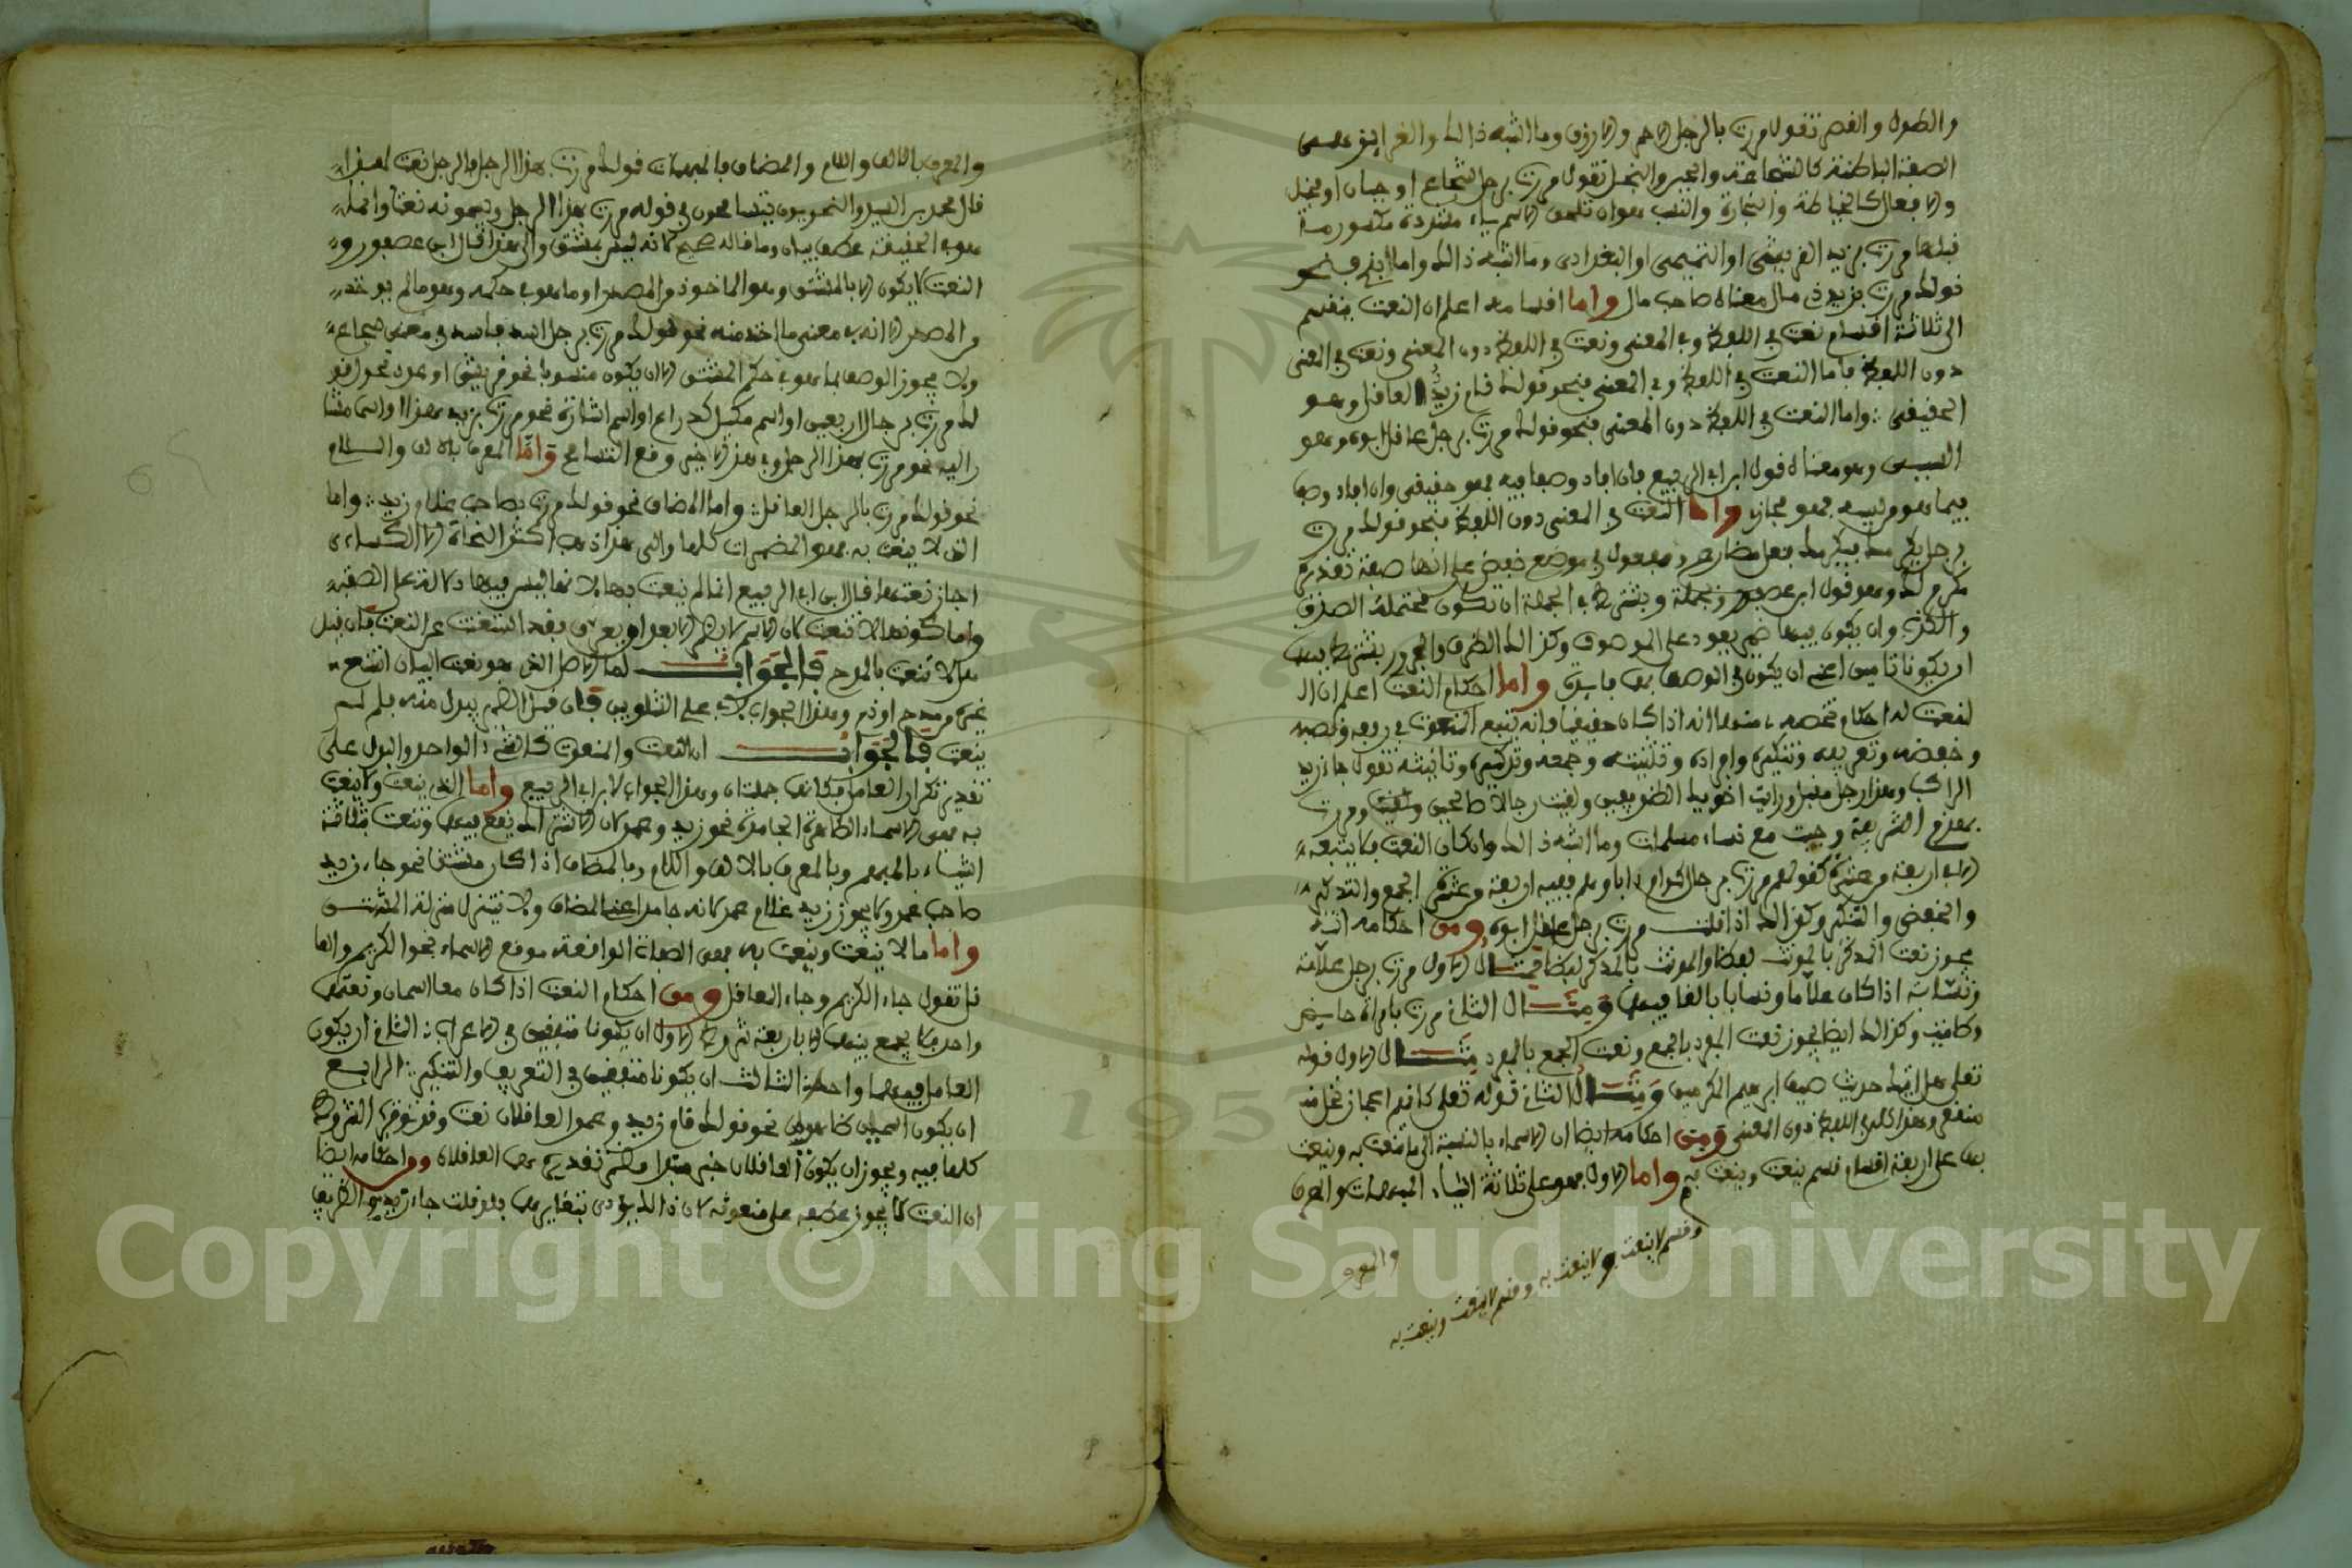 والطول والقصر تقول مررت بالرجل الاحمر والازرق وما اشبه ذالك والغرايز وهي
الصفة الباطنة كالشجاعة والجبن والبخل تقول مررت برجل شجاع او جبان او بخيل
والافعال كالخياطة والتجارة والنسب وهو ان تلحق الاسم ياء مشددة مكسور ما
قبلها مررت بزيد القريشي او التميمي او البغدادي وما اشبه ذالك واما
قولك مررت بزيد ذي مال معناه صاحب مال واما اقسامه اعلم ان النعت ينقسم
الى ثلاثة اقسام نعت في اللفظ وفي المعنى ونعت في اللفظ دون المعنى ونعت في المعنى
دون اللفظ فاما النعت في اللفظ وفي المعنى فنحو قولك قام زيد العاقل وهو
الحقيقي واما النعت في اللفظ دون المعنى فنحو قولك مررت برجل عاقل ابوه وهو
السببي وهو معناه قول ابن ابي الربيع فان افاد وصفا فيه فهو حقيقي وان افاد وصفا
فيما هو من سببه فهو مجازي واما النعت في المعنى دون اللفظ فنحو قولك مررت
برجل يكرمك فيكرمك فعل مضارع ومفعول في موضع خفض على انها صفة تقديره
مكرم لك وهو قول ابن عصفور وجملة ويشترط في الجملة ان تكون محتملة الصدق
والكذب وان يكون فيها ضمير يعود على الموصوف وكذالك الظرف والمجرور يشترط فيهما
ان يكونا تامين اعني ان يكون في الوصف بهما فايدة واما احكام النعت اعلم ان ا
لنعت له احكام تخصه منها انه اذا كان حقيقيا فانه يتبع المنعوت في رفعه ونصبه
وخفضه وتعريفه وتنكيره وافراده وتثنيته وجمعه وتذكيره وتانيثه تقول جاء زيد
الراكب وهذا رجل مقبل ورايت اخويك الظريفين ولقيت رجالا صالحين ومررت
بهذه الشريفة وجيت مع نساء مسلمات وما اشبه ذالك وان كان النعت لا يتبعه
الا في اربعة من عشرة كقولهم مررت برجال كرام اباوهم ففيه اربعة من عشرة الجمع والتذكير
والخفض والتنكير وكذالك اذا قلت مررت برجل عاقل ابوه ومن احكامه انه
يجوز نعت المذكر بالمونث لفظا والمونث بالمذكر لفظا فمثال الاول مررت برجل علامة
ونسابة اذا كان علاما ونسابا بالغا فيهما ومثال الثاني مررت بامراة حايض
وطامث وكذالك ايضا يجوز نعت المفرد بالجمع ونعت الجمع بالمفرد مثال الاول قوله
تعلى هل اتيك حديث ضيف ابرهيم المكرمين ومثال الثاني قوله تعلى كانهم اعجاز نخل منقعر
وهذا كله في اللفظ دون المعنى ومن احكامه ايضا ان الاسماء بالنسبة الى ما ينعت به وينعت
هي على اربعة اقسام قسم ينعت وينعت به واما الاول فهو على ثلاثة اشياء المبهمات والعرف
وقسم لا ينعت ولا ينعت به وقسم لا ينعت وينعت به
والمعرف
والمعرف بالالف واللام والمضاف فالمبهمات قولك مررت بهذا الرجل فالرجل نعت لهذا
قال محمد بن السيد والنحويون يتسامحون في قوله مررت بهذا الرجل ويسمونه نعتا وانما
هو في الحقيقة عطف بيان وما قاله صحيح لانه ليس بمشتق والى هذا قال ابن عصفور
النعت لا يكون الا بالمشتق وهو الماخوذ من المصدر او ما هو في حكمه وهو ما لم يوخذ
من المصدر الا انه في معنى ما اخذ منه نحو قولك مررت برجل اسد فاسد في معنى شجاع
ولا يجوز الوصف بما هو في حكم المشتق الا ان يكون منسوبا نحو قريشي او عدد نحو قو
لك مررت برجال اربعين او اسم مكيل كذراع او اسم اشارة نحو مررت بزيد هذا او اسما مشا
را اليه نحو مررت بهذا الرجل وفي هذا الاخير وقع التسامح واما المعرف بالالف والام
نحو قولك مررت بالرجل العاقل واما المضاف نحو قولك مررت بصاحب غلام زيد واما
الذي لا ينعت به فهو المضمرات كلها والى هذا ذهب اكثر النحاة الا الكساءي
اجاز نعتها قال ابن ابي الربيع انما لم ينعت بها لانها ليس فيها دلالة على الصفة
واما كونها لا تنعت لان الاسم لا يضمر الا بعد ان يعرف فقد استغنت عن النعت فان قيل
هل لا تنعت بالمدح فالجواب لما الاصل الذي هو نعت البيان امتنع
غيره من مدح او ذم وهذا الجواب لابي علي الشلوبين فان قيل المضمر يبدل منه فلم لم
ينعت فالجواب ان النعت والمنعوت كالشيء الواحد والبدل على
تقدير تكرار العامل فكانهما جملتان وهذا الجواب لابن ابي الربيع واما الذي ينعت ولا ينعت
به فهي الاسماء الظاهرة الجامدة نحو زيد وعمر لان الاشتراك يقع فيها وتنعت بثلاثة
اشياء بالمبهم وبالمعرف بالالف واللام وبالمضاف اذا كان مشتقا نحو جاء زيد
صاحب عمرو ولا يجوز زيد غلام عمر لانه جامد اعني المضاف ولا يتنزل منزلة المشتق
واما ما لا ينعت وينعت به فهي الصفات الواقعة موقع الاسماء نحو الكريم والعا
قل تقول جاء الكريم وجاء العاقل ومن احكام النعت اذا كان معا اسمان ونعتهما
واحد فلا يجمع بينهما الا باربعة شروط الاول ان يكونا متفقين في الاعراب الثاني ان يكون
العامل فيهما واحدا الثالث ان يكونا متفقين في التعريف والتنكير الرابع
ان يكون اسمين ظاهرين نحو قولك قام زيد وعمرو العاقلان نعت وقد توفرت الشروط
كلها فيه ويجوز ان يكون العاقلان خبر مبتدا مضمر تقديره هما العاقلان ومن احكامه ايضا
ان النعت لا يجوز عطفه على منعوته لان ذالك يؤدي بتغايرهما فلو قلت جاء زيد والظريف